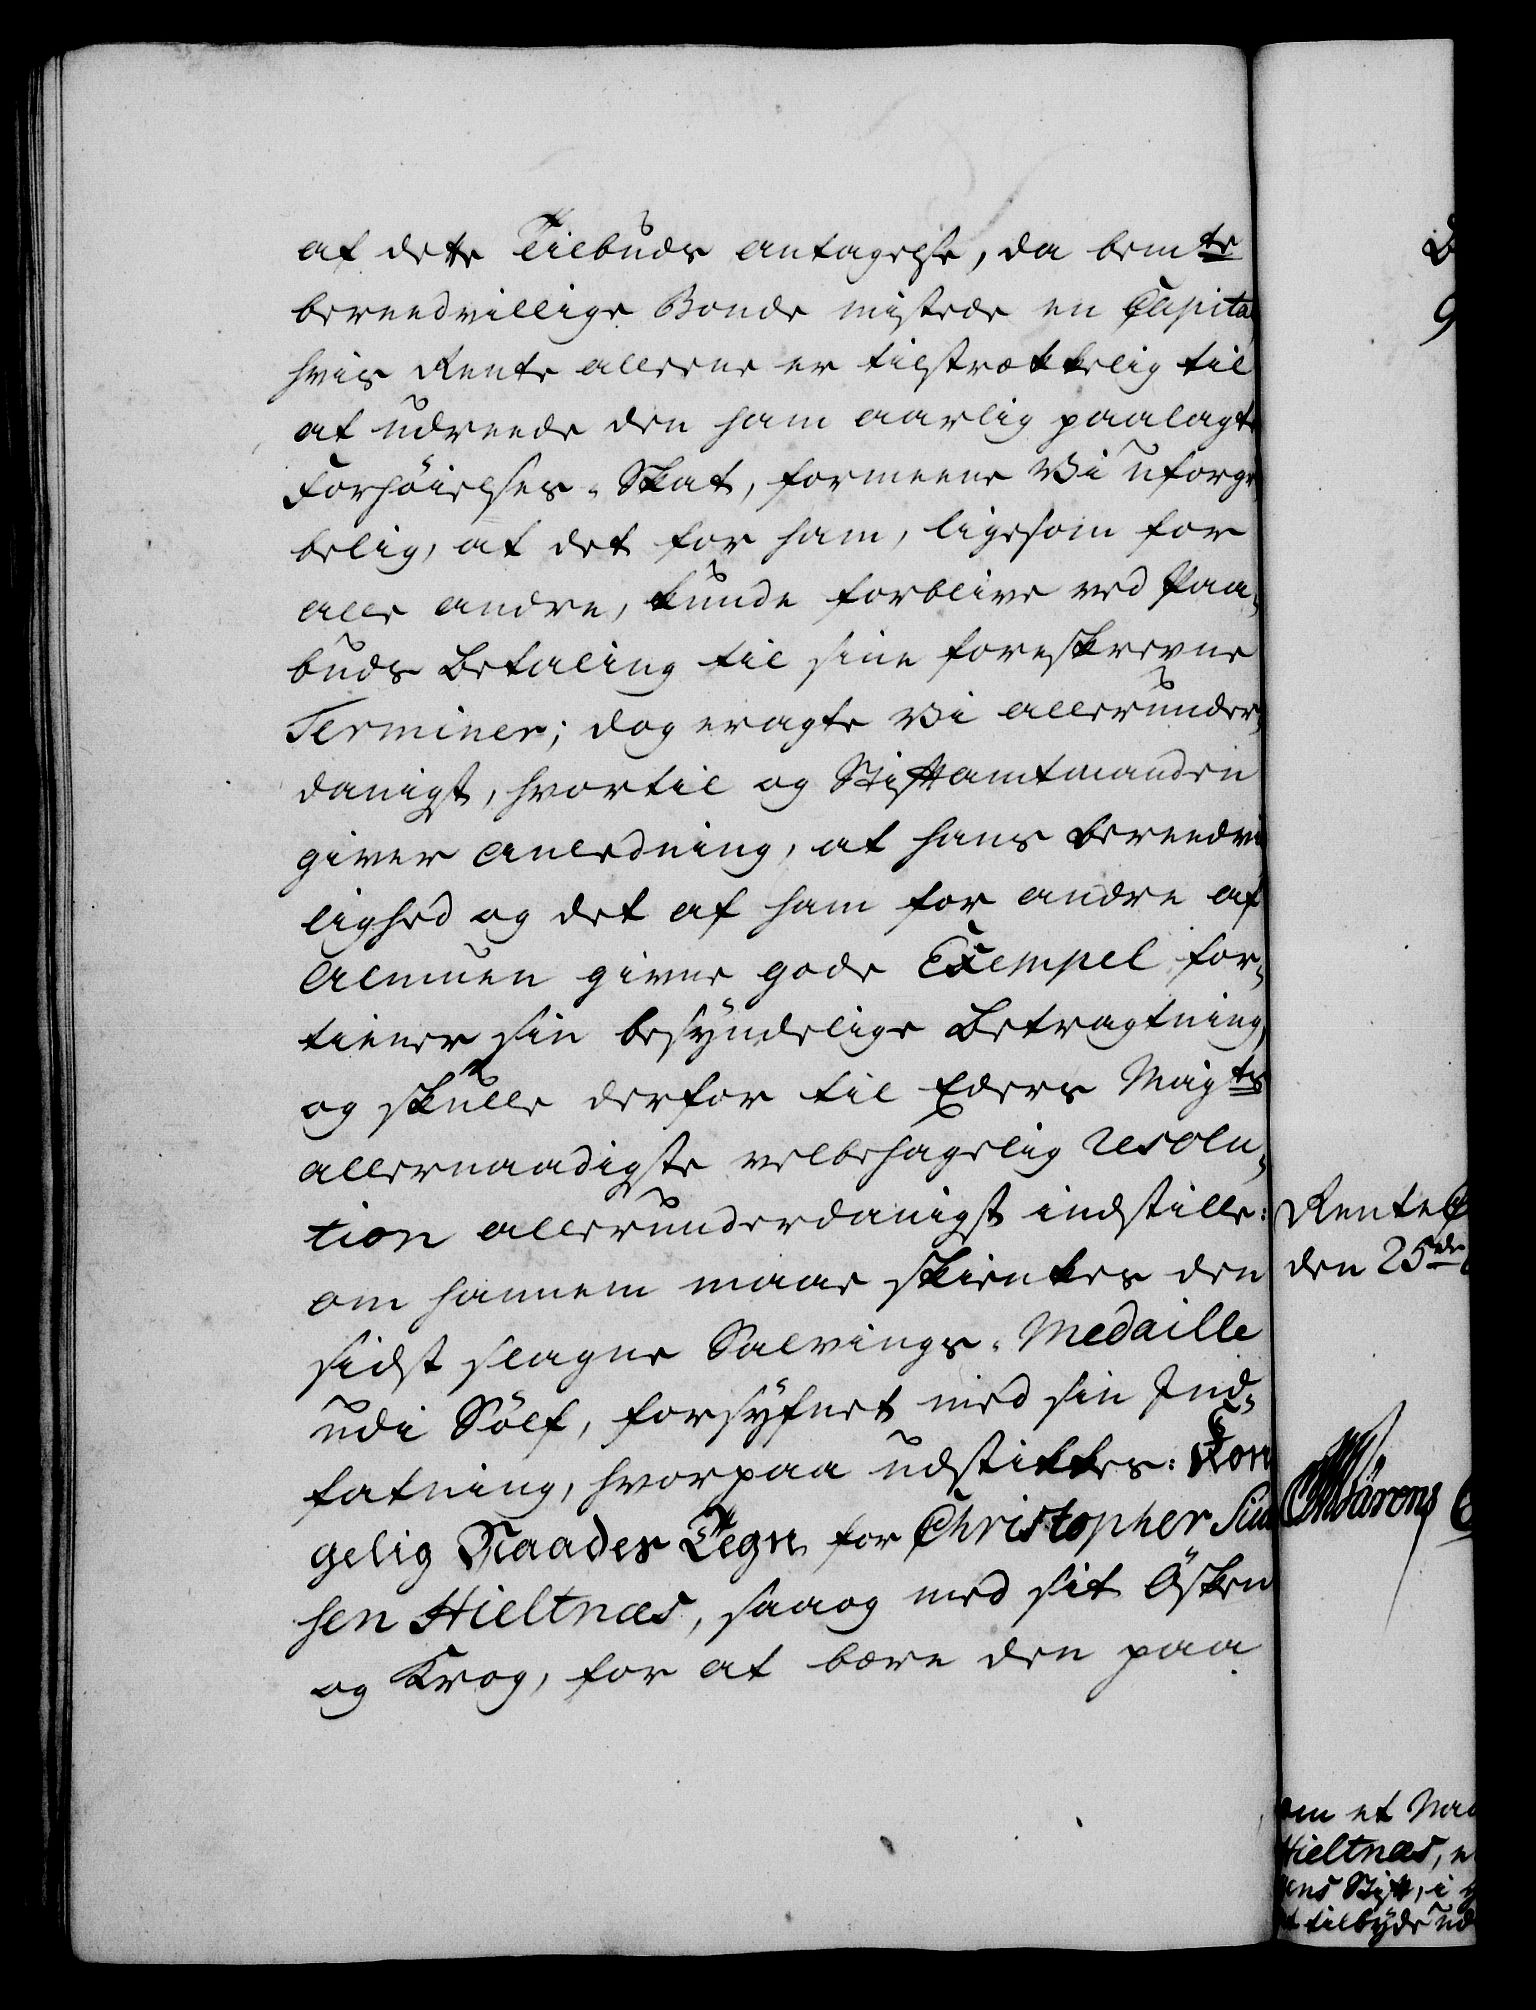 af dette Tilbuds antagelse, da bemte
bereedvillige Bonde mistede en Capita
hvis Rente alleene er tilstrækkelig til
at udreede den ham aarlig paalagte
Forhöielses-Skat, formeene Vi uforgr
belig, at det for ham, ligesom for
alle andre, kunde forblive ved Paa-
buds Betaling til sine foreskrevne
Terminer; dog eragte Vi allerunder-
danigst, hvortil og Stiftamtmanden
giver Anledning, at hans Bereedvi
lighed og det af ham for andre af
Almuen givne gode Exempel for-
tiener sin besÿnderlige Betragtning,
og skulle derfor til Eders Majts
allernaadigste velbehagelig Resolu-
tion allerunderdanigst indstille:
om hannem maae skienkes den
sidst slagne Salvings-Medaille
udi Sölf, forsÿnet med sin Ind-
fatning, hvorpaa udstikkes: Kon
gelig Naades Tegn for Christopher
sen Hieltnæs, saaog med sit Ösken
og Krog, for at bære den paa
Rente
den 25de
om et
Hieltnæs,
ens Stift, i
tilbÿde ud